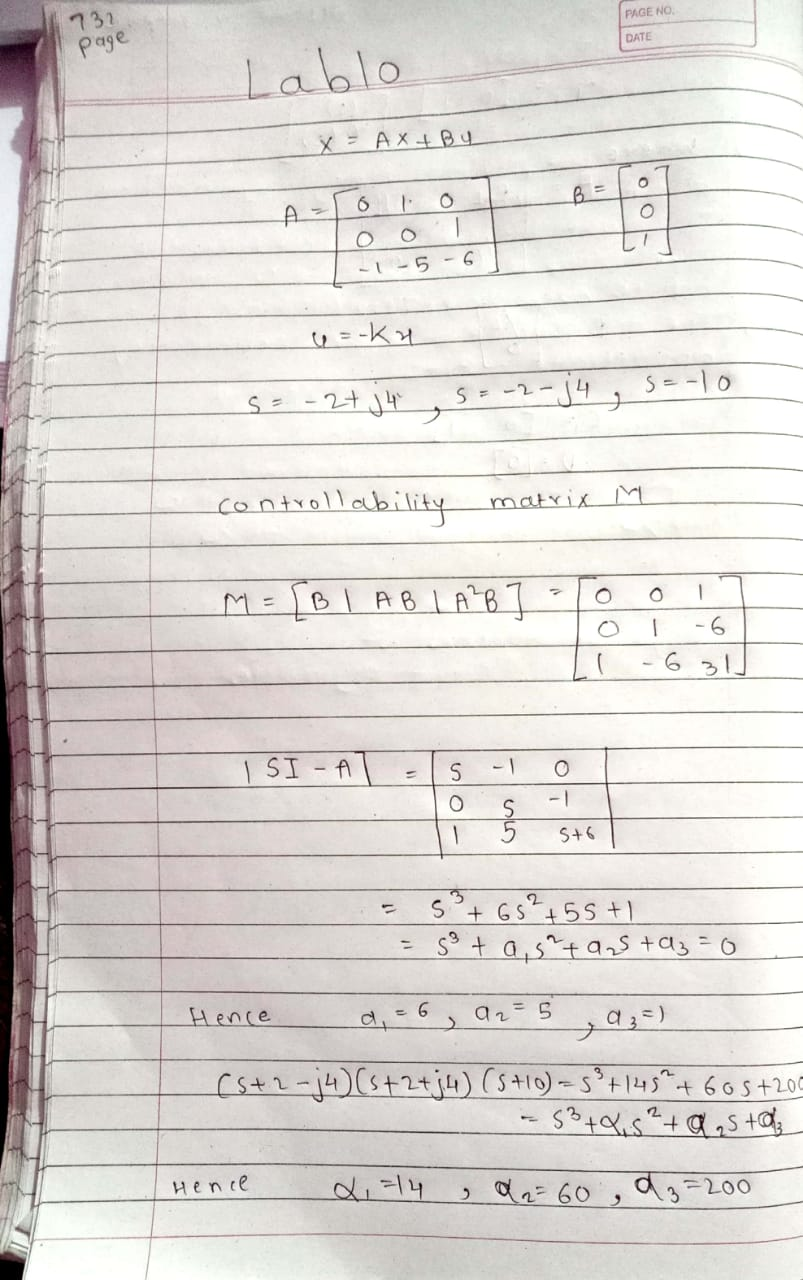 732
page
PAGE NO.
DATE
Lab10
x = Ax + Bu
A = [ 0 1 0
0 0 1
-1 -5 -6 ]
B = [ 0
0
1 ]
u = -Kx
s = -2+j4 , s = -2-j4 , s = -10
controllability matrix M
M = [B | AB | A²B] = [ 0 0 1
0 1 -6
1 -6 31 ]
| SI - A ] = | s -1 0 |
| 0 s -1 |
| 1 5 s+6 |
= s³ + 6s² + 5s + 1
= s³ + a₁s² + a₂s + a₃ = 0
Hence a₁ = 6 , a₂ = 5 , a₃ = 1
(s+2-j4)(s+2+j4)(s+10) = s³+14s²+60s+200
= s³+α₁s²+α₂s+α₃
Hence α₁=14 , α₂=60 , α₃=200